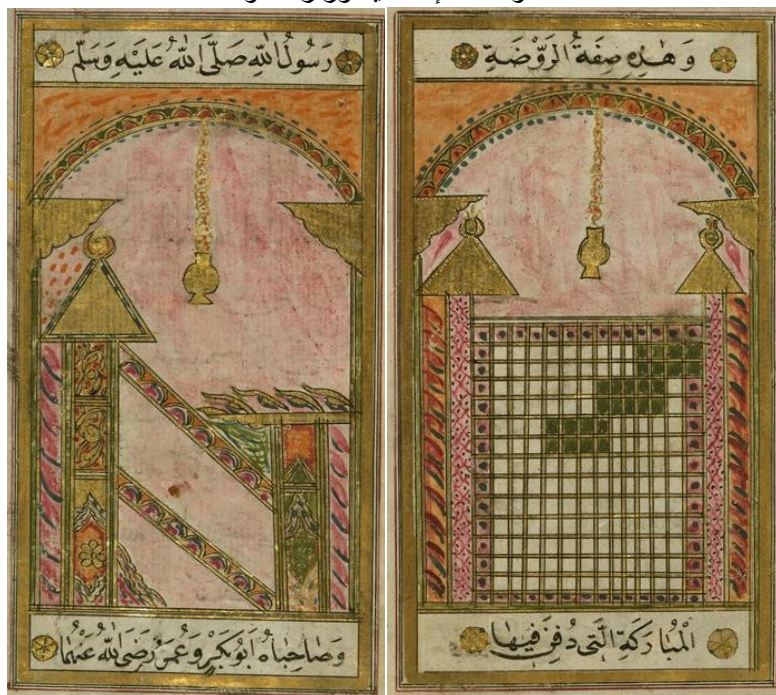 وَهٰذِهِ صِفَةُ الرَّوْضَةِ
الْمُبَارَكَةِ الَّتِى دُفِنَ فِيهَا
رَسُولُ اللهِ صَلَّى اللهُ عَلَيْهِ وَسَلَّمَ
وَصَاحِبَاهُ اَبُوبَكْرٍ وَعُمَرُ رَضِىَ اللهُ عَنْهُمَا